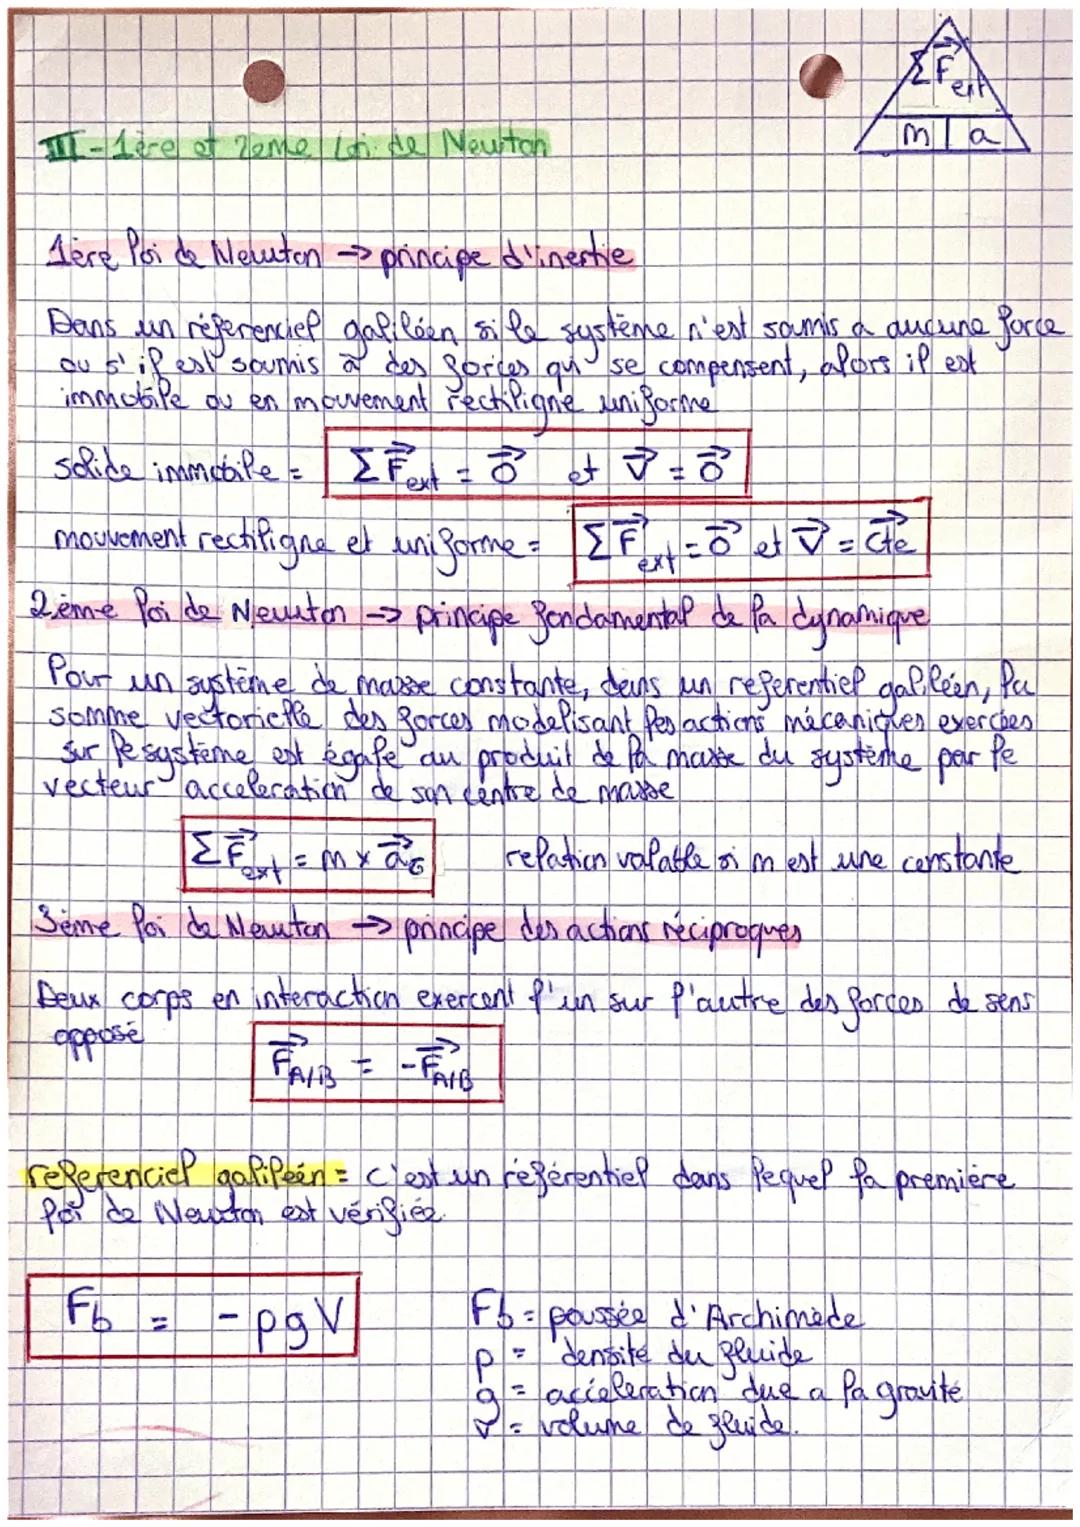 Σ F⃗ext
m | a
III - 1ère et 2ème Loi de Newton
1ère loi de Newton → principe d'inertie
Dans un réferenciel galiléen, si le système n'est soumis a aucune force
ou s'il est soumis à des forces qui se compensent, alors il est
immobile ou en mouvement rectiligne uniforme
solide immobile = Σ F⃗ext = 0⃗ et v⃗ = 0⃗
mouvement rectiligne et uniforme = Σ F⃗ext = 0⃗ et v⃗ = c⃗te
2ème loi de Newton → principe fondamental de la dynamique
Pour un système de masse constante, dans un referentiel galiléen, la
somme vectorielle des forces modelisant les actions mécaniques exercées
sur le système est égale au produit de la masse du système par le
vecteur acceleration de son centre de masse
Σ F⃗ext = m × a⃗G relation valable si m est une constante
3ème loi de Newton → principe des actions réciproques
Deux corps en interaction exercent l'un sur l'autre des forces de sens
opposé
F⃗A/B = - F⃗A/B
réferenciel galiléen = c'est un référentiel dans lequel la première
loi de Newton est vérifiée.
Fb = - pgV
Fb = poussée d'Archimède
p = densité du fluide
g = acceleration due a la gravité
v = volume de fluide.